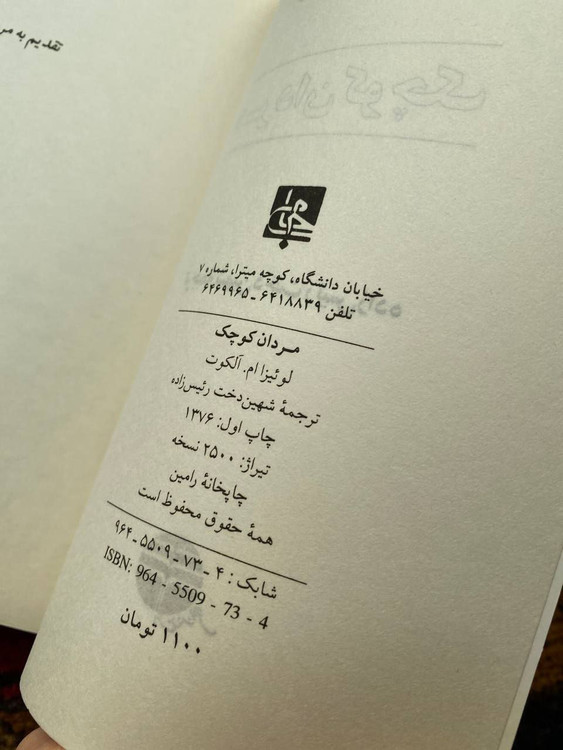 تقدیم به مر
خیابان دانشگاه، کوچه میترا، شماره ۷
تلفن ۶۴۱۸۸۳۹ ـ ۶۴۶۹۹۶۵
مردان کوچک
لوئیزا ام. آلکوت
ترجمهٔ شهین‌دخت رئیس‌زاده
چاپ اول: ۱۳۷۶
تیراژ: ۲۵۰۰ نسخه
چاپخانهٔ رامین
همهٔ حقوق محفوظ است
شابک: ۴ ـ ۷۳ ـ ۵۵۰۹ ـ ۹۶۴
ISBN: 964 - 5509 - 73 - 4
۱۱۰۰ تومان